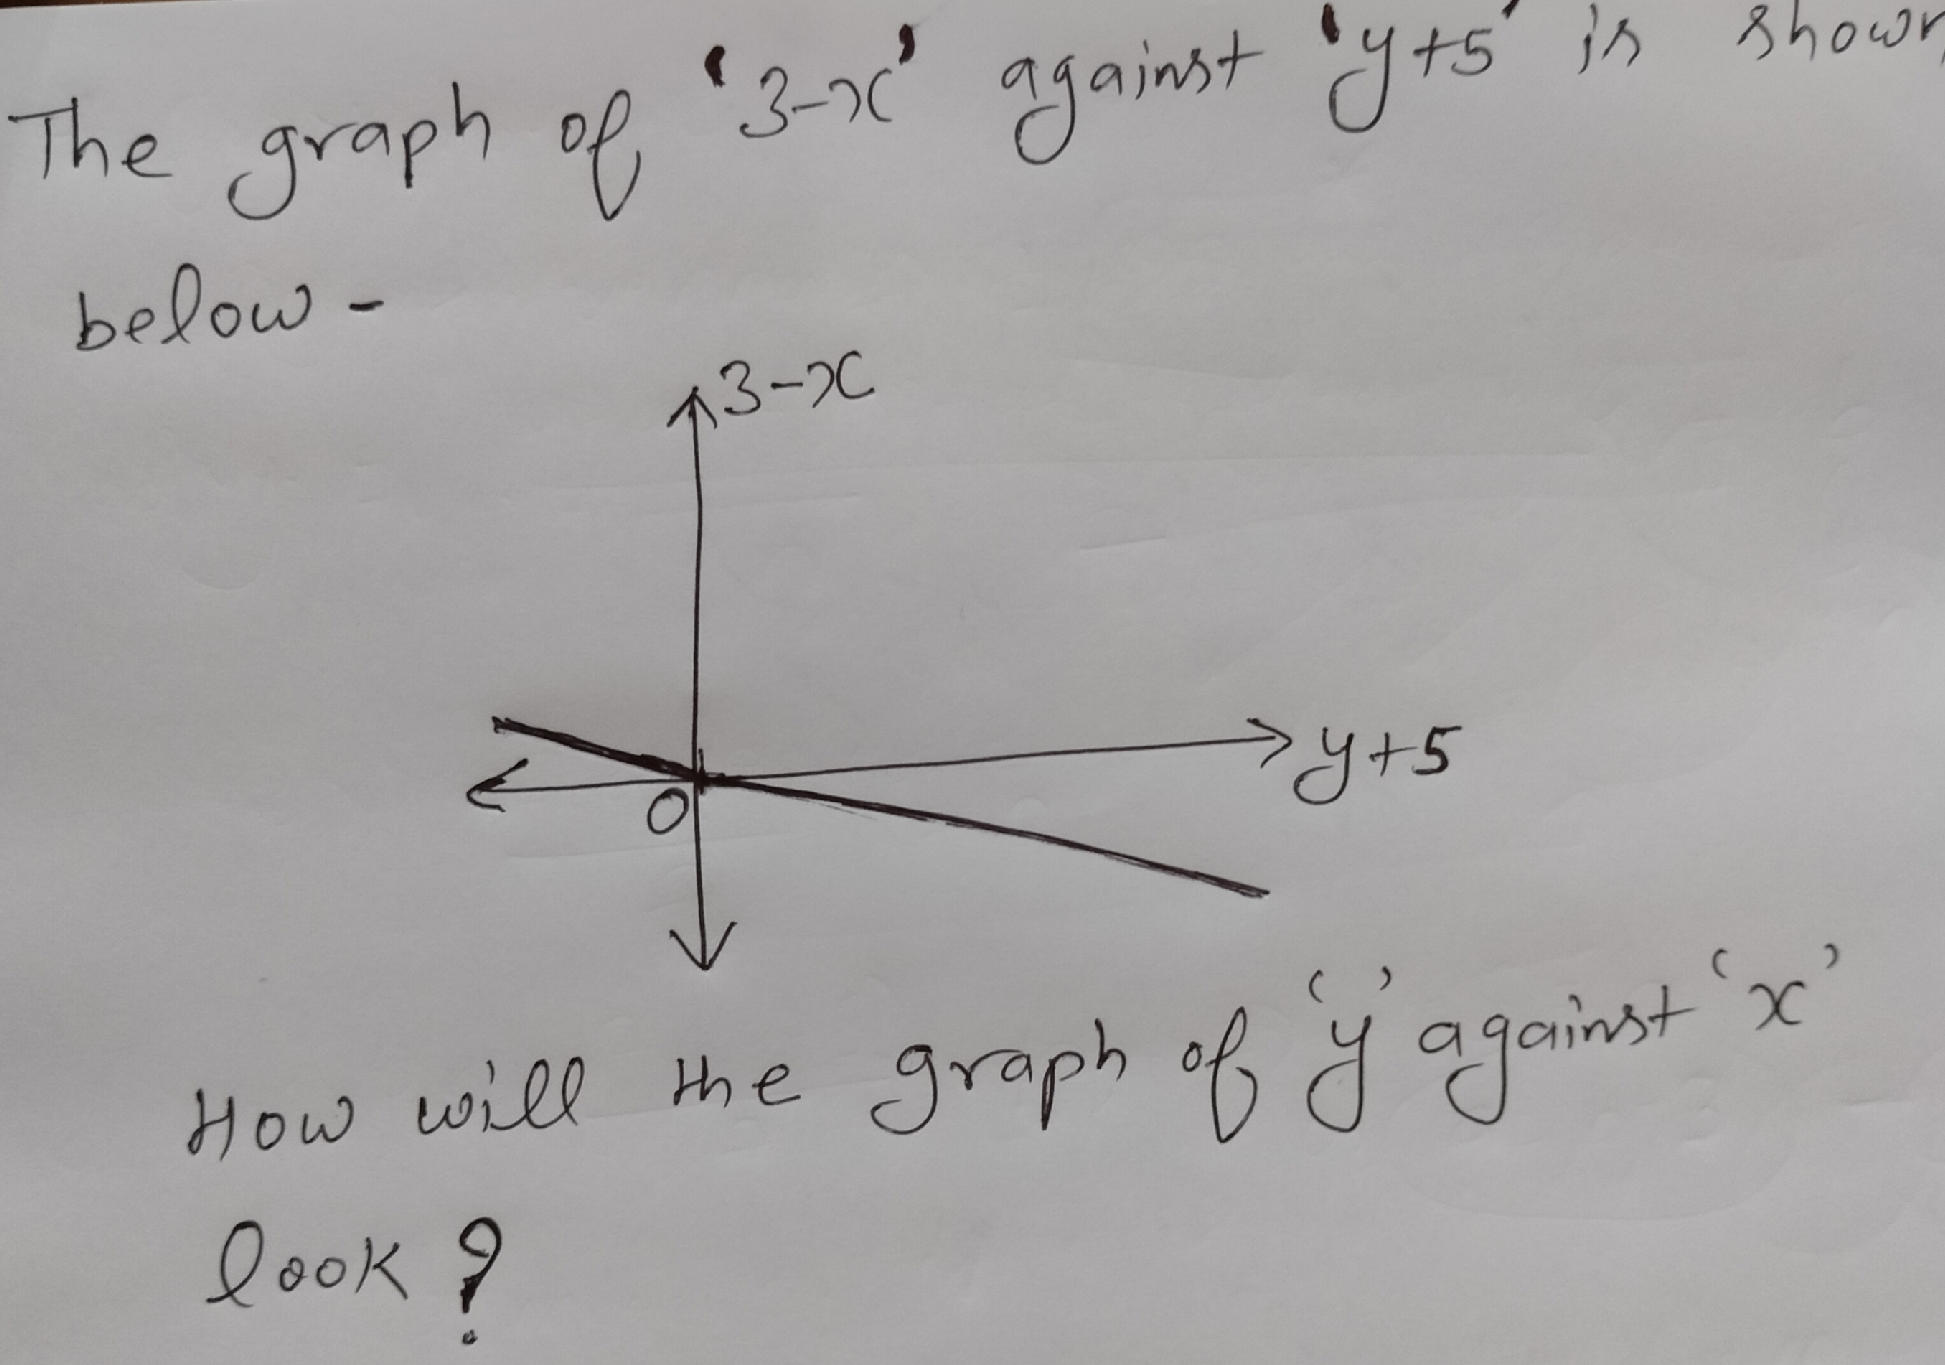 The graph of '3-x' against 'y+5' is shown
below -
3-x
y+5
O
How will the graph of 'y' against 'x'
look?